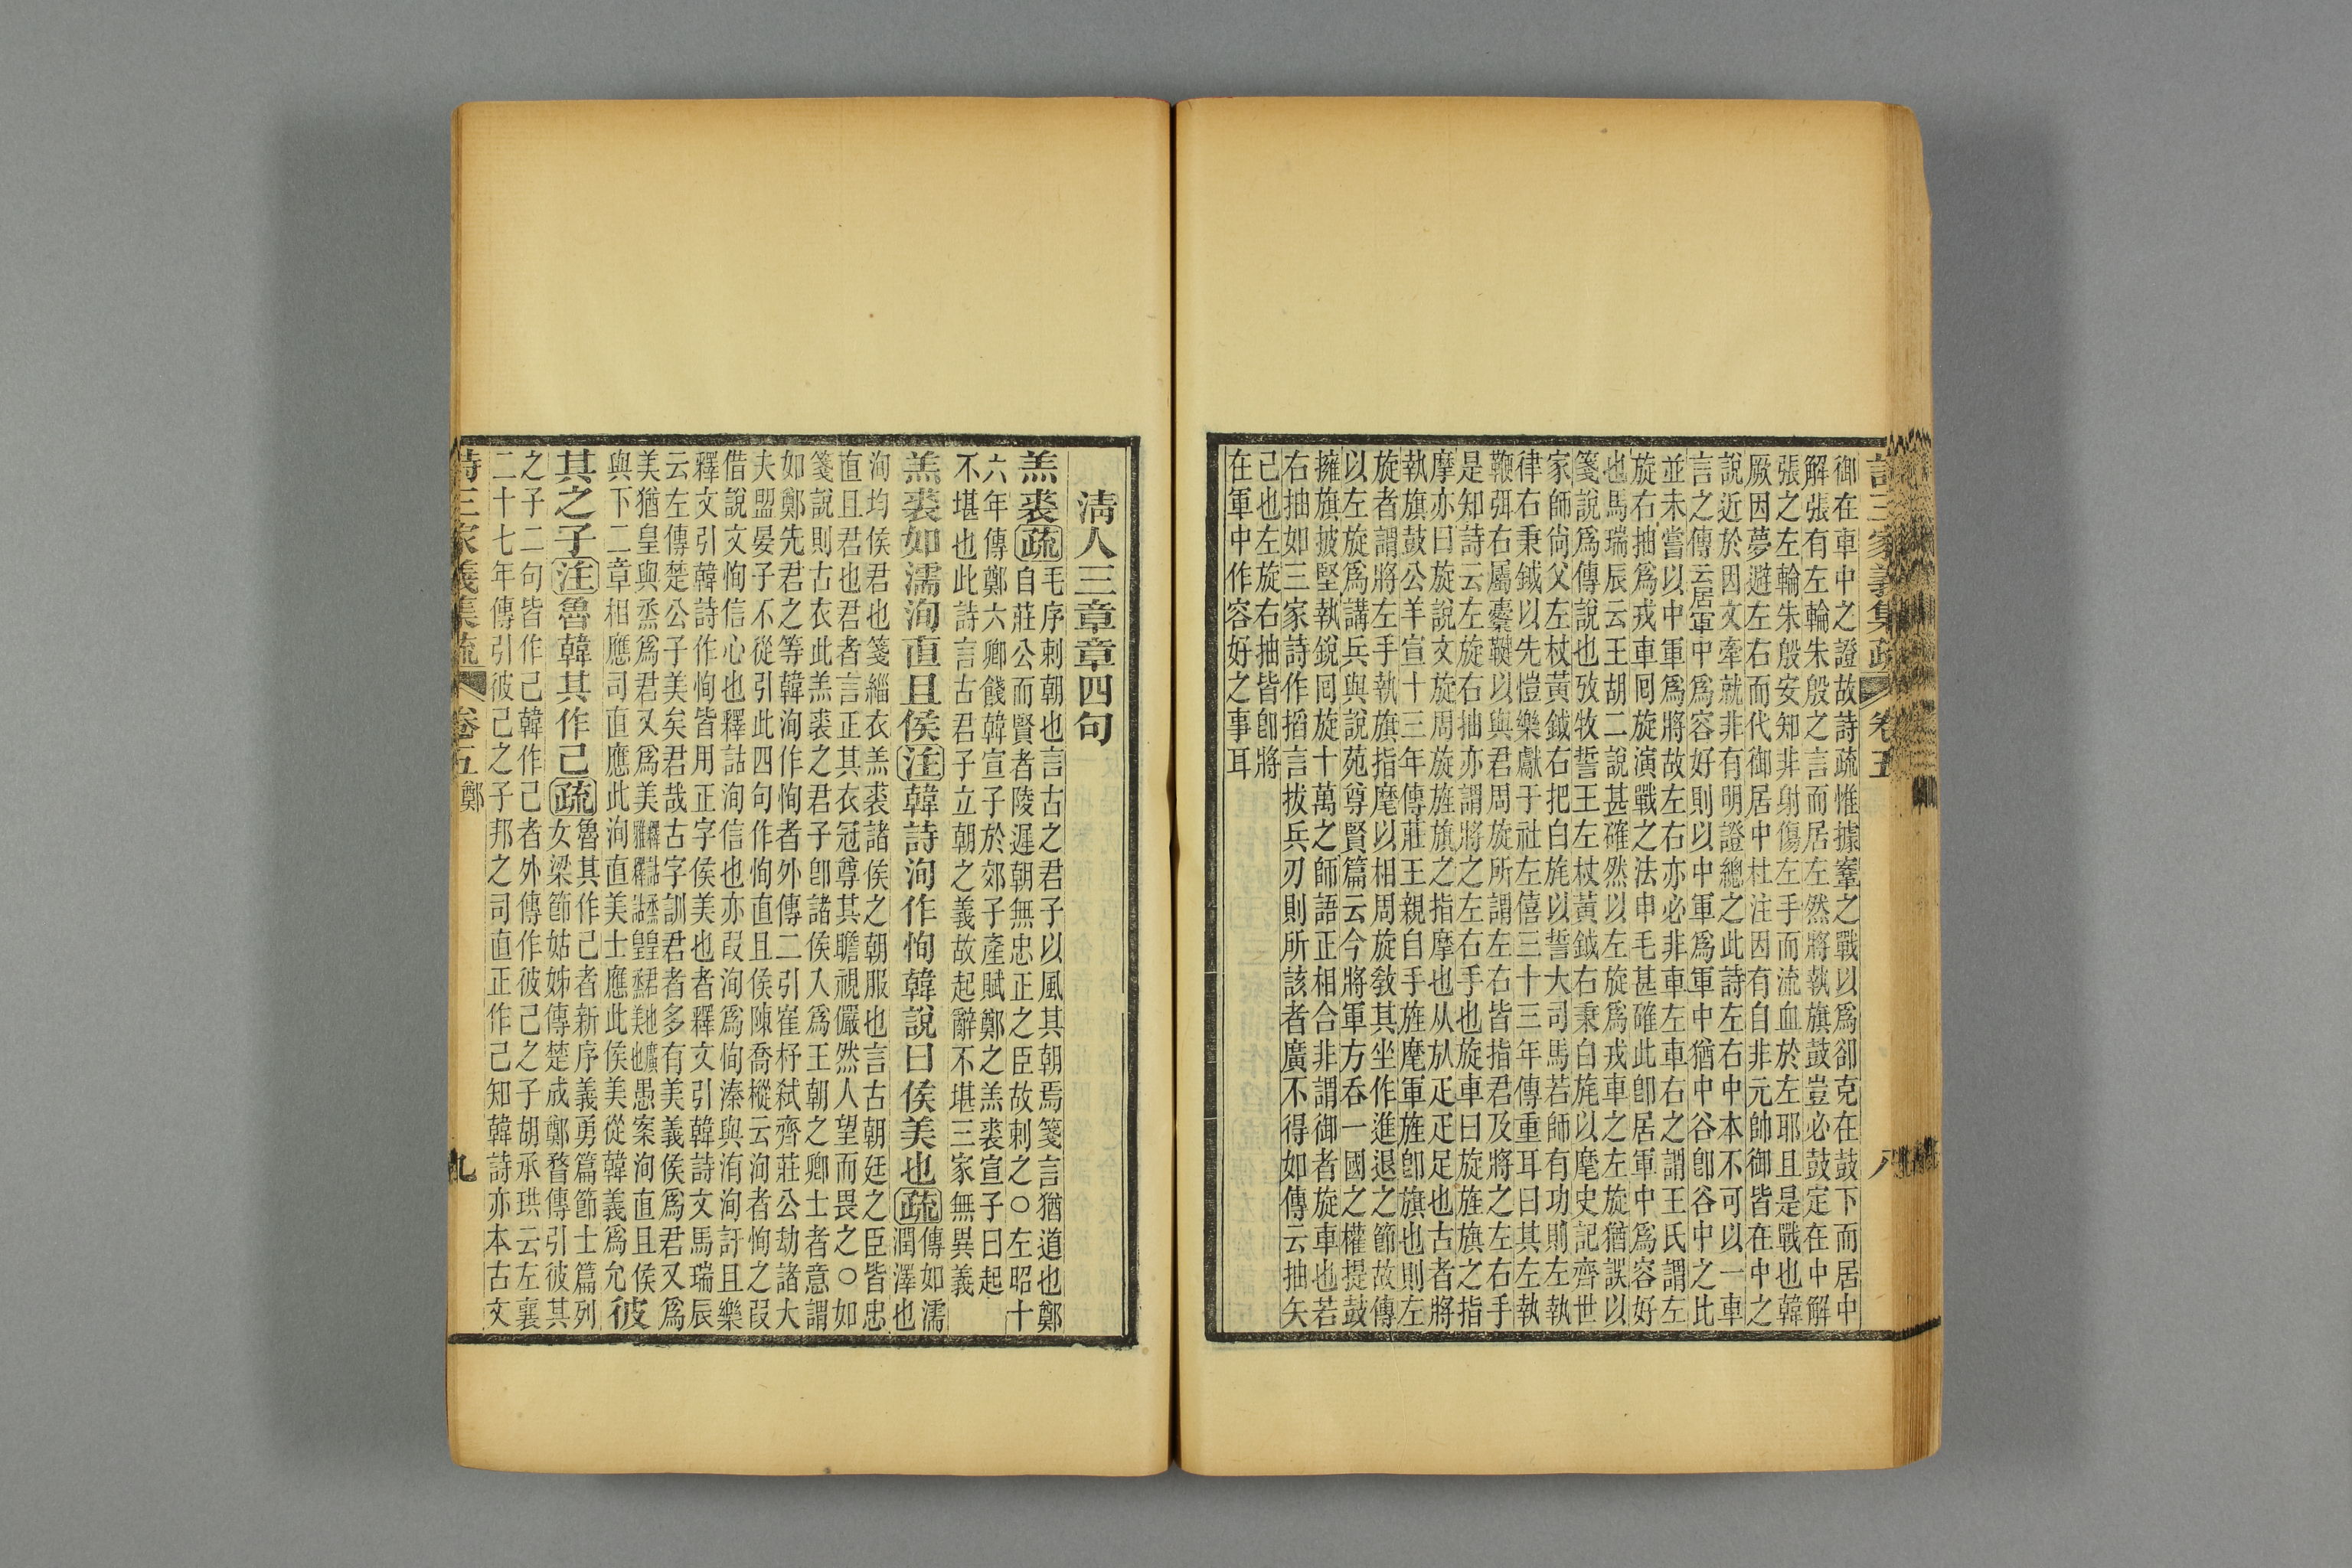 詩三家義集疏 卷五 八
御在車中之證故詩疏惟據鞌之戰以爲卻克在鼓下而居中
解張有左輪朱殷之言而居左然將執旗鼓豈必鼓定在中解
張之左輪朱殷安知非射傷左手而流血於左耶且是戰也韓
厥因夢避左右而代御居中杜注因有自非元帥御皆在中之
說近於因文牽就非有明證總之此詩左右中本不可以一車
言之傳云居軍中爲容好則以中軍爲軍中猶中谷卽谷中之比
並未嘗以中軍爲將故左右亦必非車左車右之謂王氏謂左
旋右抽爲戎車囘旋演戰之法申毛甚確此卽居軍中爲容好
也馬瑞辰云王胡二說甚確然以左旋爲戎車之左旋猶誤以
箋說爲傳說也攷牧誓王左杖黃鉞右秉白旄以麾史記齊世
家師尙父左杖黃鉞右把白旄以誓大司馬若師有功則左執
律右秉鉞以先愷樂獻于社左僖三十三年傳重耳曰其左執
鞭弭右屬櫜鞬以與君周旋所謂左右皆指君及將之左右手
是知詩云左旋右抽亦謂將之左右手也旋車曰旋旌旗之指
摩亦曰旋說文旋周旋旌旗之指摩也从㫃疋疋足也古者將
執旗鼓公羊宣十三年傳莊王親自手旌麾軍旌卽旗也則左
旋者謂將左手執旗指麾以相周旋敎其坐作進退之節故傳
以左旋爲講兵與說苑尊賢篇云今將軍方吞一國之權提鼓
擁旗披堅執銳囘旋十萬之師語正相合非謂御者旋車也若
右抽如三家詩作搯言拔兵刃則所該者廣不得如傳云抽矢
己也左旋右抽皆卽將
在軍中作容好之事耳
清人三章章四句
羔裘疏毛序刺朝也言古之君子以風其朝焉箋言猶道也鄭
自莊公而賢者陵遲朝無忠正之臣故刺之○左昭十
六年傳鄭六卿餞韓宣子於郊子產賦鄭之羔裘宣子曰起
不堪也此詩言古君子立朝之義故起辭不堪三家無異義
羔裘如濡洵直且侯注韓詩洵作恂韓說曰侯美也疏傳如濡
潤澤也
洵均侯君也箋緇衣羔裘諸侯之朝服也言古朝廷之臣皆忠
直且君也君者言正其衣冠尊其瞻視儼然人望而畏之○如
箋說則古衣此羔裘之君子卽諸侯入爲王朝之卿士者意謂
如鄭先君之等韓洵作恂者外傳二引崔杼弒齊莊公劫諸大
夫盟晏子不從引此四句作恂直且侯陳喬樅云洵者恂之叚
借說文恂信心也釋詁洵信也亦叚洵爲恂溱與洧洵訏且樂
釋文引韓詩作恂皆用正字侯美也者釋文引韓詩文馬瑞辰
云左傳楚公子美矣君哉古字訓君者多有美義侯爲君又爲
美猶皇與烝爲君又爲美釋詁烝皇君也廣雅釋詁皇烝美也愚案洵直且侯
與下二章相應司直應此洵直美士應此侯美從韓義爲允彼
其之子注魯韓其作己疏魯其作己者新序義勇篇節士篇列
女梁節姑姊傳楚成鄭瞀傳引彼其
之子二句皆作己韓作己者外傳作彼己之子胡承珙云左襄
二十七年傳引彼己之子邦之司直正作己知韓詩亦本古文
詩三家義集疏 卷五 鄭 九